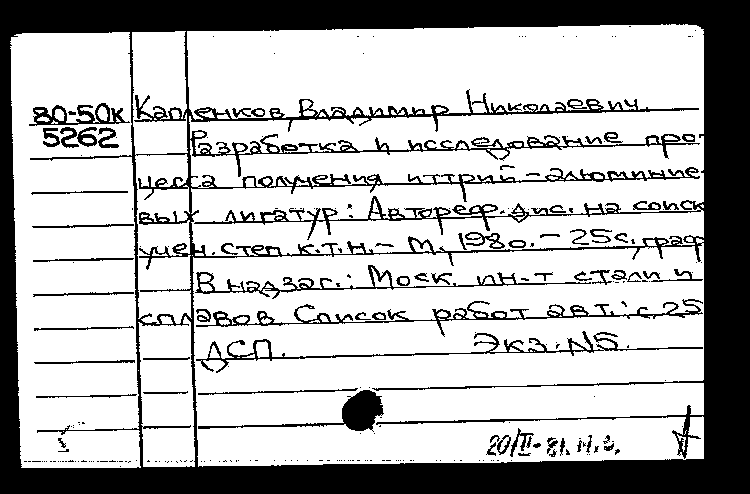 80-50к Капленков, Владимир Николаевич.
5262 Разработка и исследование про-
цесса получения иттрий-алюминие-
вых лигатур: Автореф. дис. на соиск.
учен. степ. к.т.н. - М., 1980. - 25с., граф.
В надзаг.: Моск. ин-т стали и
сплавов. Список работ авт.: с. 25
ДСП. Экз. №5.
20/II-81.